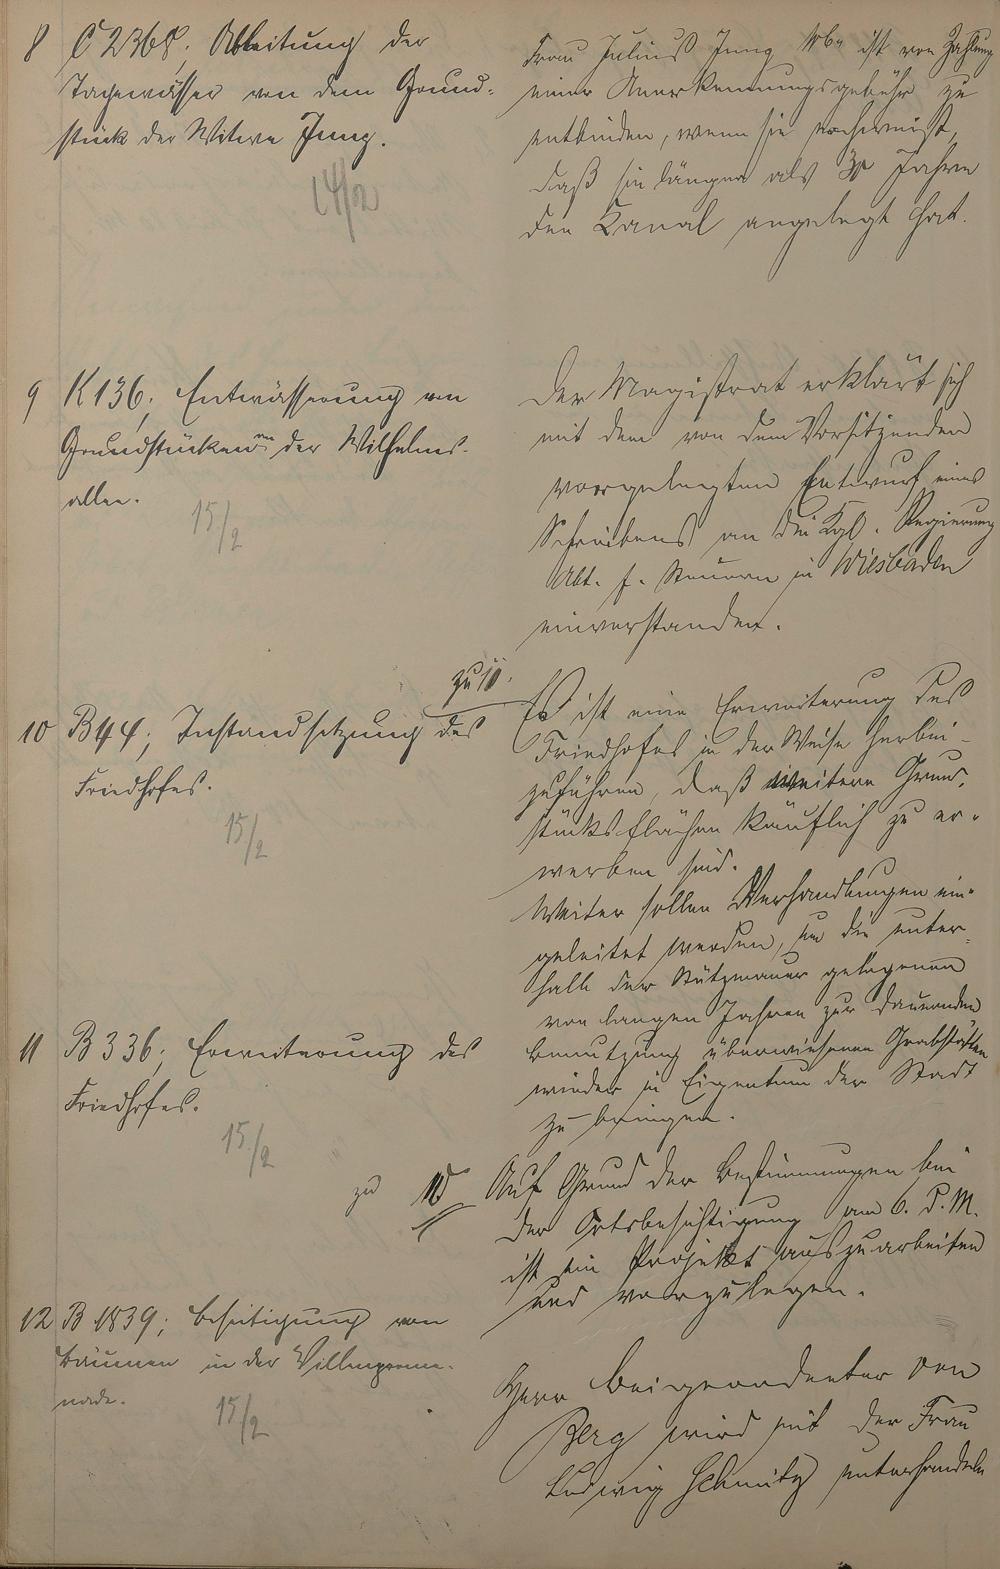 8 C 2368; Ableitung der
Tagewässer von dem Grund-
stück der Witwe Jung.
14/2
Frau Julius Jung Wb. ist von Zahlung
einer Anerkennungsgebühr zu
entbinden, wenn sie nachweist,
daß sie länger als 30 Jahre
den Kanal angelegt hat.
9 K 136; Entwässerung von
Grundstücken an der Wilhelms-
allee.
15/2
Der Magistrat erklärt sich
mit dem von dem Vorsitzenden
vorgelegten Entwurf eines
Schreibens an die Kgl. Regierung
Abt. f. Steuern in Wiesbaden
einverstanden.
10 B 44; Instandsetzung des
Friedhofes.
15/2
zu 11.
Es ist eine Erweiterung des
Friedhofes in der Weise herbei-
zuführen, daß weitere Grund-
stücksflächen käuflich zu er-
werben sind.
Weiter sollen Verhandlungen ein-
geleitet werden, um die unter-
halb der Stützmauer gelegenen
von langen Jahren zur dauernden
Benutzung überwiesenen Grabstätten
wieder in Eigentum der Stadt
zu bringen.
11 B 336; Erweiterung des
Friedhofes.
15/2
zu 10
Auf Grund der Bestimmungen bei
der Ortsbesichtigung am 6. d. M.
ist ein Projekt auszuarbeiten
und vorzulegen.
12 B 1839; Beseitigung von
Bäumen in der Villenprome-
nade.
15/2
Herr Beigeordneter von
Berg wird mit der Frau
Ludwig Schmitz unterhandeln